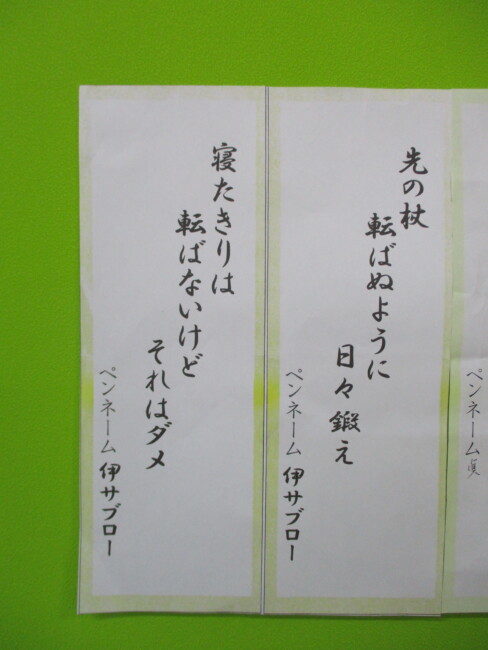 先の杖
転ばぬように
日々鍛え
ペンネーム 伊サブロー
寝たきりは
転ばないけど
それはダメ
ペンネーム 伊サブロー
ペンネーム